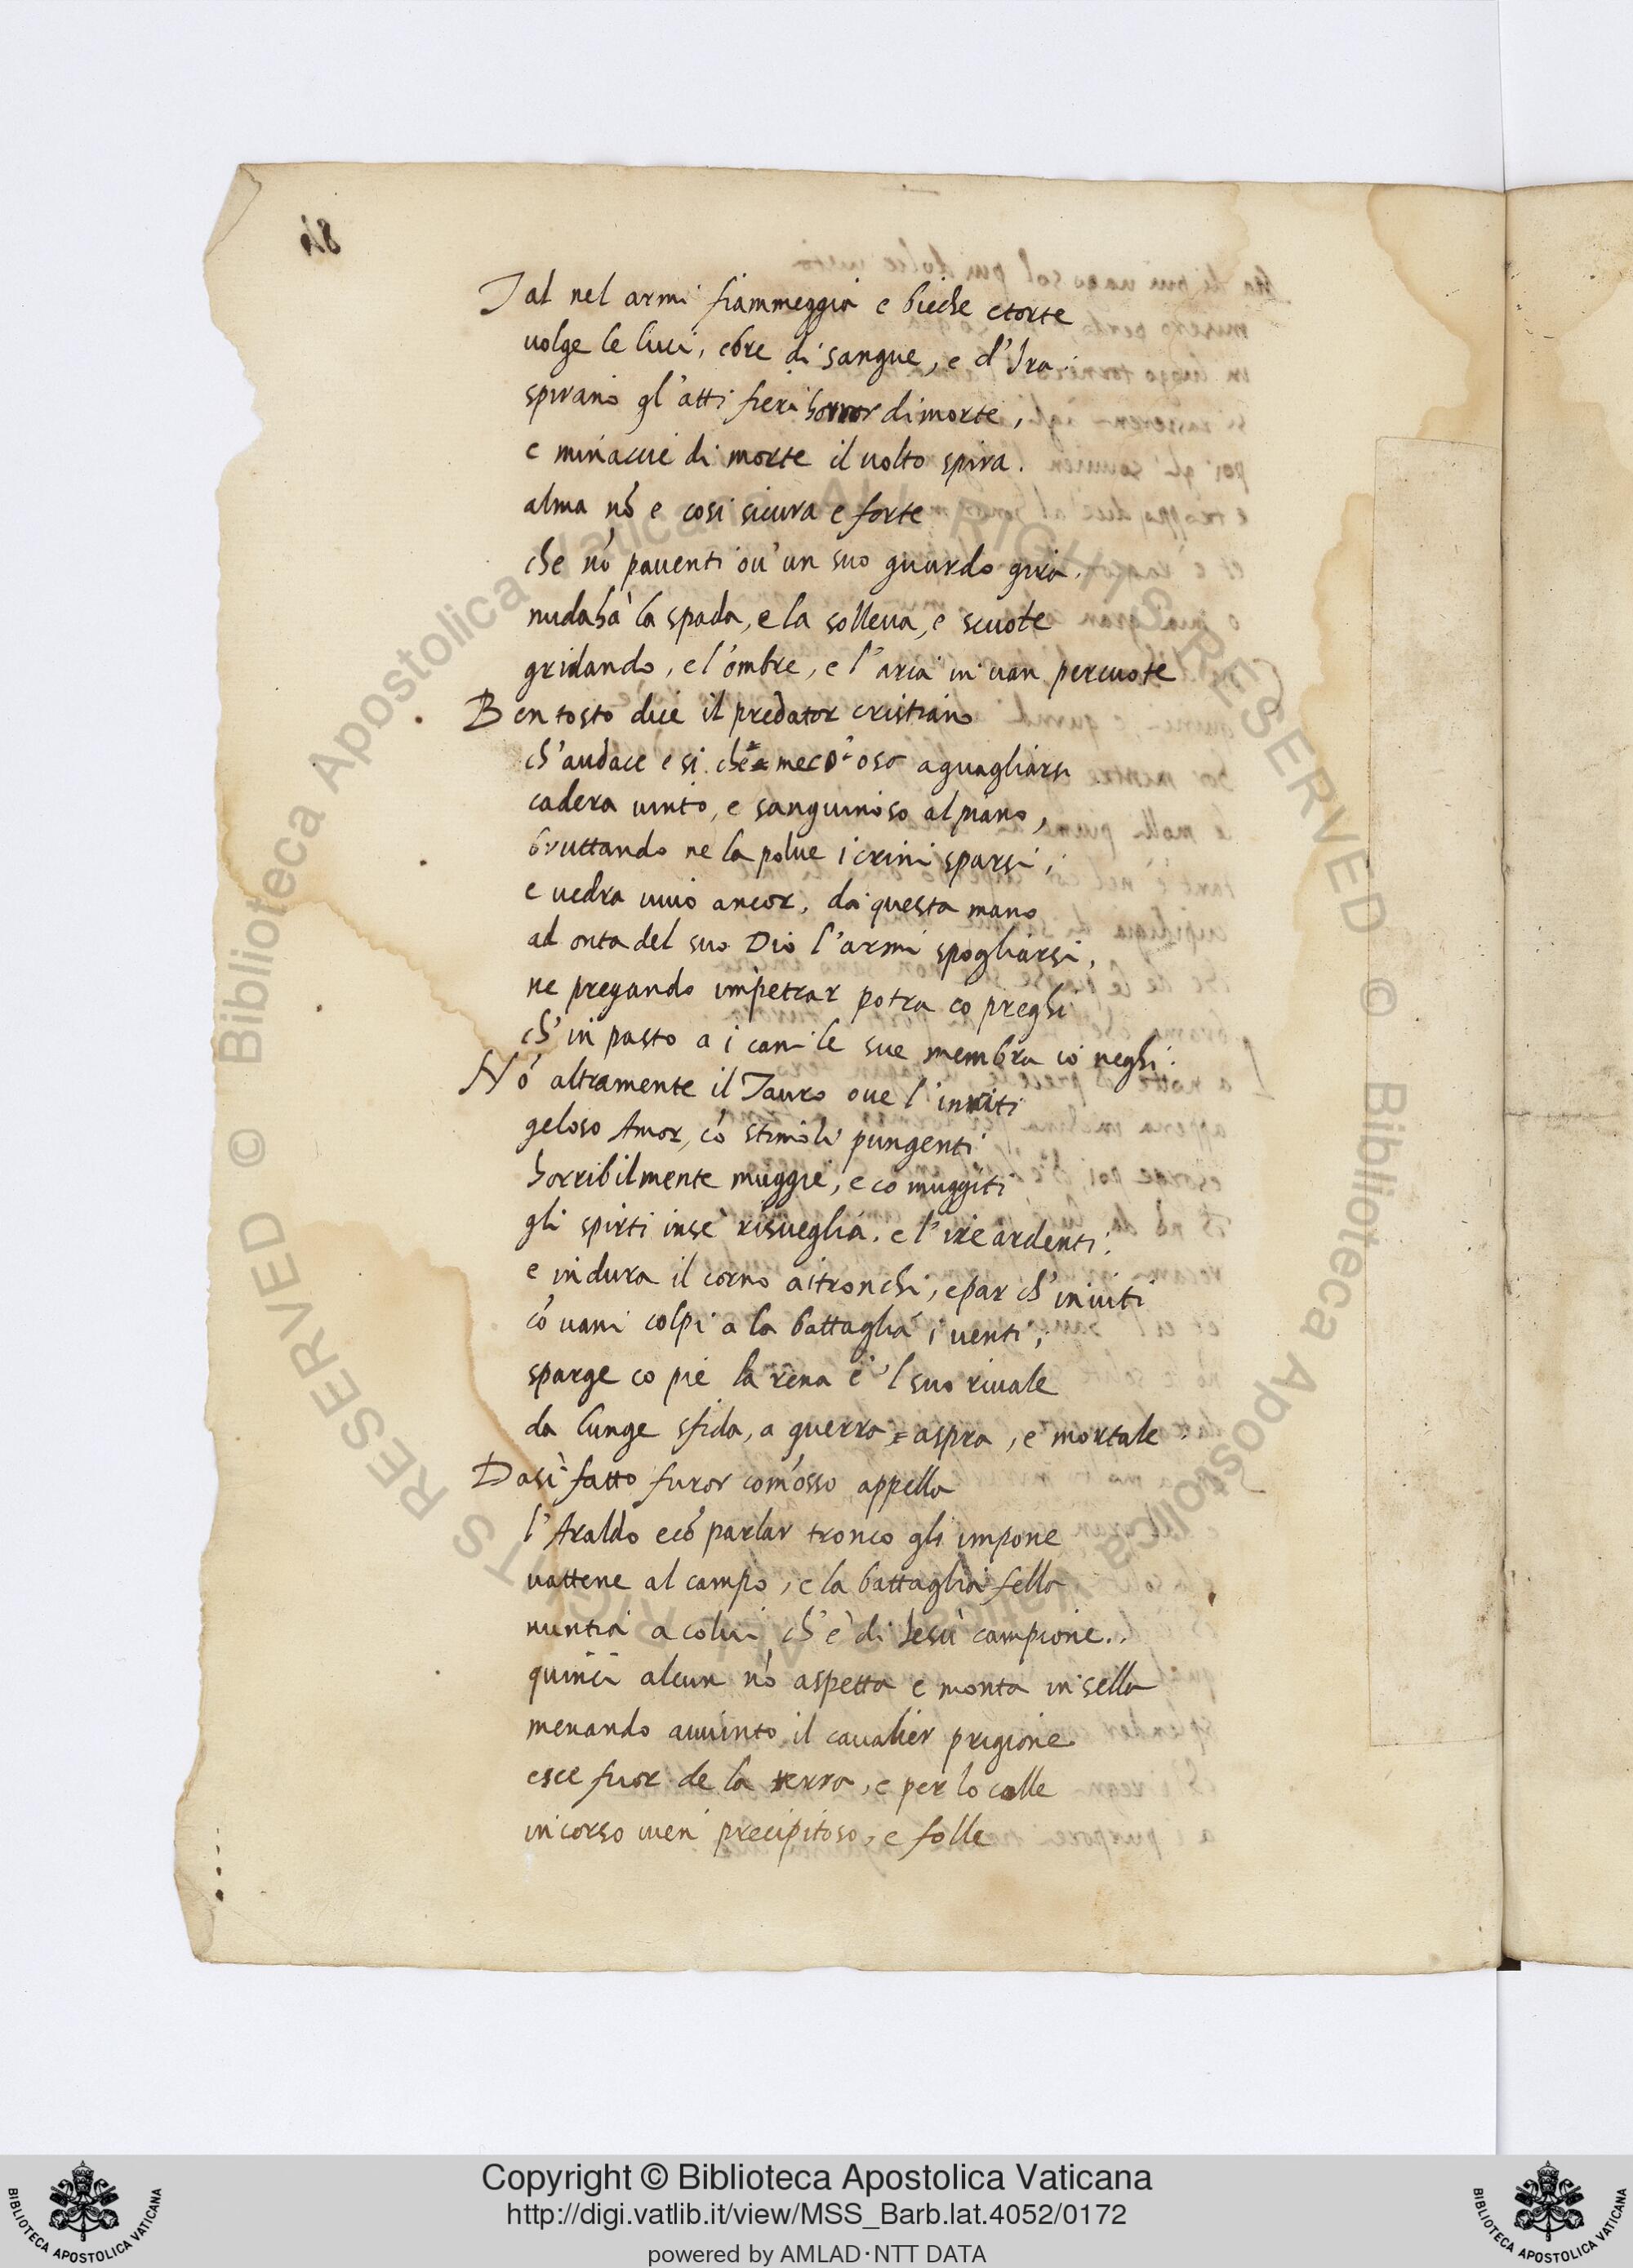 Tal nel armi fiammeggia e bieche e torte
uolge le luci, ebre di sangue, e d'Ira.
spirano gl'atti fieri horror di morte,
e minacie di morte il uolto spira.
alma nõ e cosi sicura e forte
che nõ pauenti ou'un suo guardo gira.
nuda hà la spada, e la solleua, e scuote
gridando, e l'ombre, e l'aria in uan percuote
Ben tosto dice il predator cristiano
ch'audace e si che meco osa aguagliarsi
cadera uinto, e sanguinoso al piano,
bruttando ne la polue i crini sparsi;
e uedra uiuo ancor, da questa mano
ad onta del suo Dio l'armi spogliarsi,
ne pregando impetrar potra co preghi
ch'in pasto a i cani le sue membra io neghi.
Nõ altramente il Tauro oue l'inriti
geloso Amor, cõ stimoli pungenti
horribilmente muggie, e co muggiti
gli spirti in sè risueglia, e l'ire ardenti.
e indura il corno ai tronchi, e par ch'inuiti
cõ uani colpi a la battaglia i uenti;
sparge co piè la rena e 'l suo riuale
da lunge sfida, a guerra aspra, e mortale.
Da sì fatto furor cõmosso appella
l'Araldo e cõ parlar tronco gli impone
uattene al campo, e la battaglia fella
nuntia a colui ch'è di Iesù campione.
quinci alcun nõ aspetta e monta in sella
menando auuinto il caualier prigione
esce fuor de la terra, e per lo colle
in corso uien precipitoso, e folle
84
Copyright © Biblioteca Apostolica Vaticana
http://digi.vatlib.it/view/MSS_Barb.lat.4052/0172
powered by AMLAD·NTT DATA
BIBLIOTECA APOSTOLICA VATICANA
BIBLIOTECA APOSTOLICA VATICANA